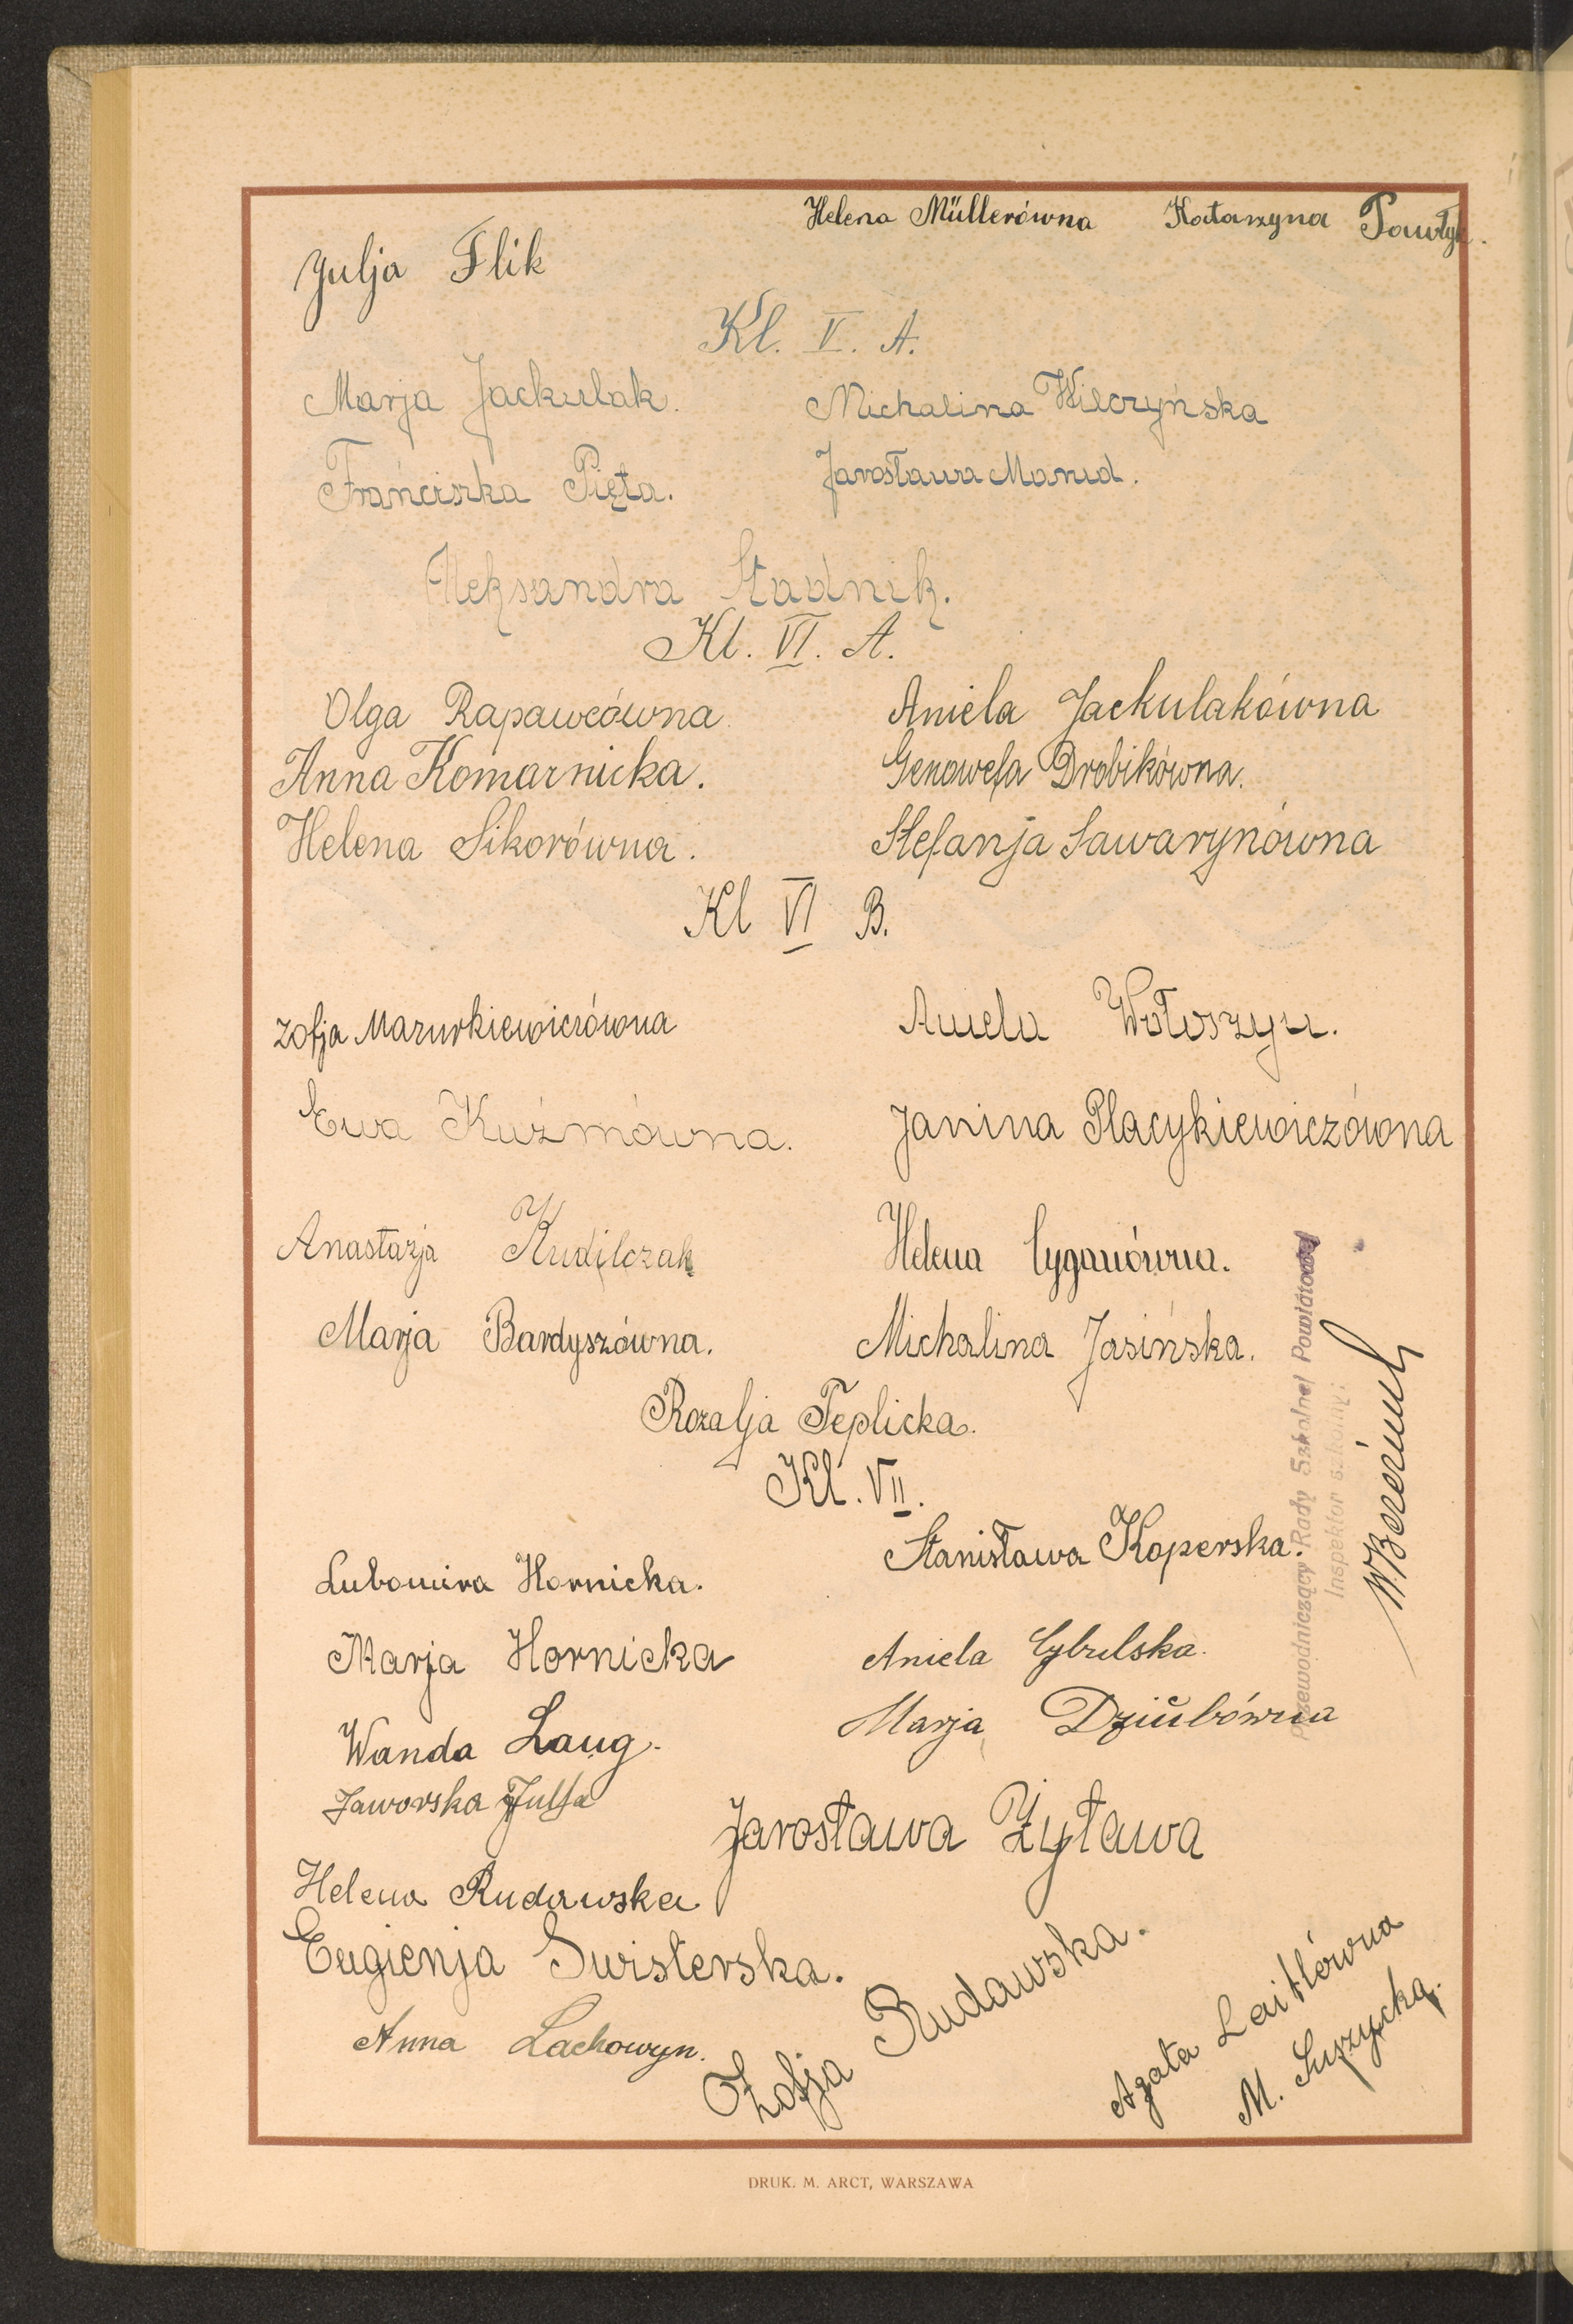 Helena Müllerówna Katarzyna Pawłyk.
Julja Flik
Kl. V. A.
Marja Jackulak. Michalina Wilczyńska
Franciszka Pięta. Jarosława Monud.
Aleksandra Stadnik.
Kl. VI. A.
Olga Rapawcówna. Aniela Jackulakówna
Anna Komarnicka. Genowefa Drobikówna.
Helena Sikorówna. Stefanja Sawarynówna
Kl VI B.
Zofja Mazurkiewiczówna Aniela Wołoszyn.
Ewa Kuźmówna. Janina Placykiewiczówna
Anastazja Kudilczak Helena Cyganówna.
Marja Bardyszówna. Michalina Jasińska.
Rozalja Teplicka.
Kl. VII.
Stanisława Koperska.
Lubomira Hornicka.
Marja Hornicka Aniela Cybulska.
Wanda Laug. Marja Dziubówna
Jaworska Julja
Jarosława Żyława
Helena Rudawska
Eugienja Swisterska.
Anna Lachowyn.
Zofja Rudawska.
Agata Leitlówna
M. Suszycka.
Przewodniczący Rady Szkolnej Powiatowej
Inspektor szkolny:
DRUK. M. ARCT, WARSZAWA